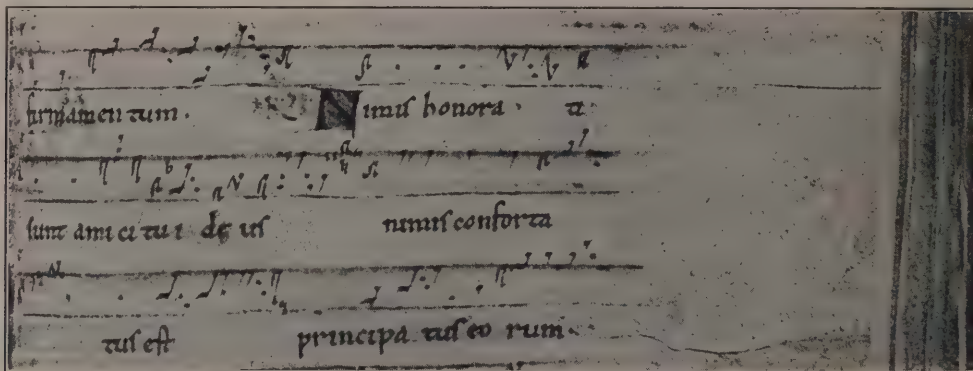 firmamen tum.
Nimis honora ti
sunt ami ci tu i de us nimis conforta
tus est principa tus eo rum.